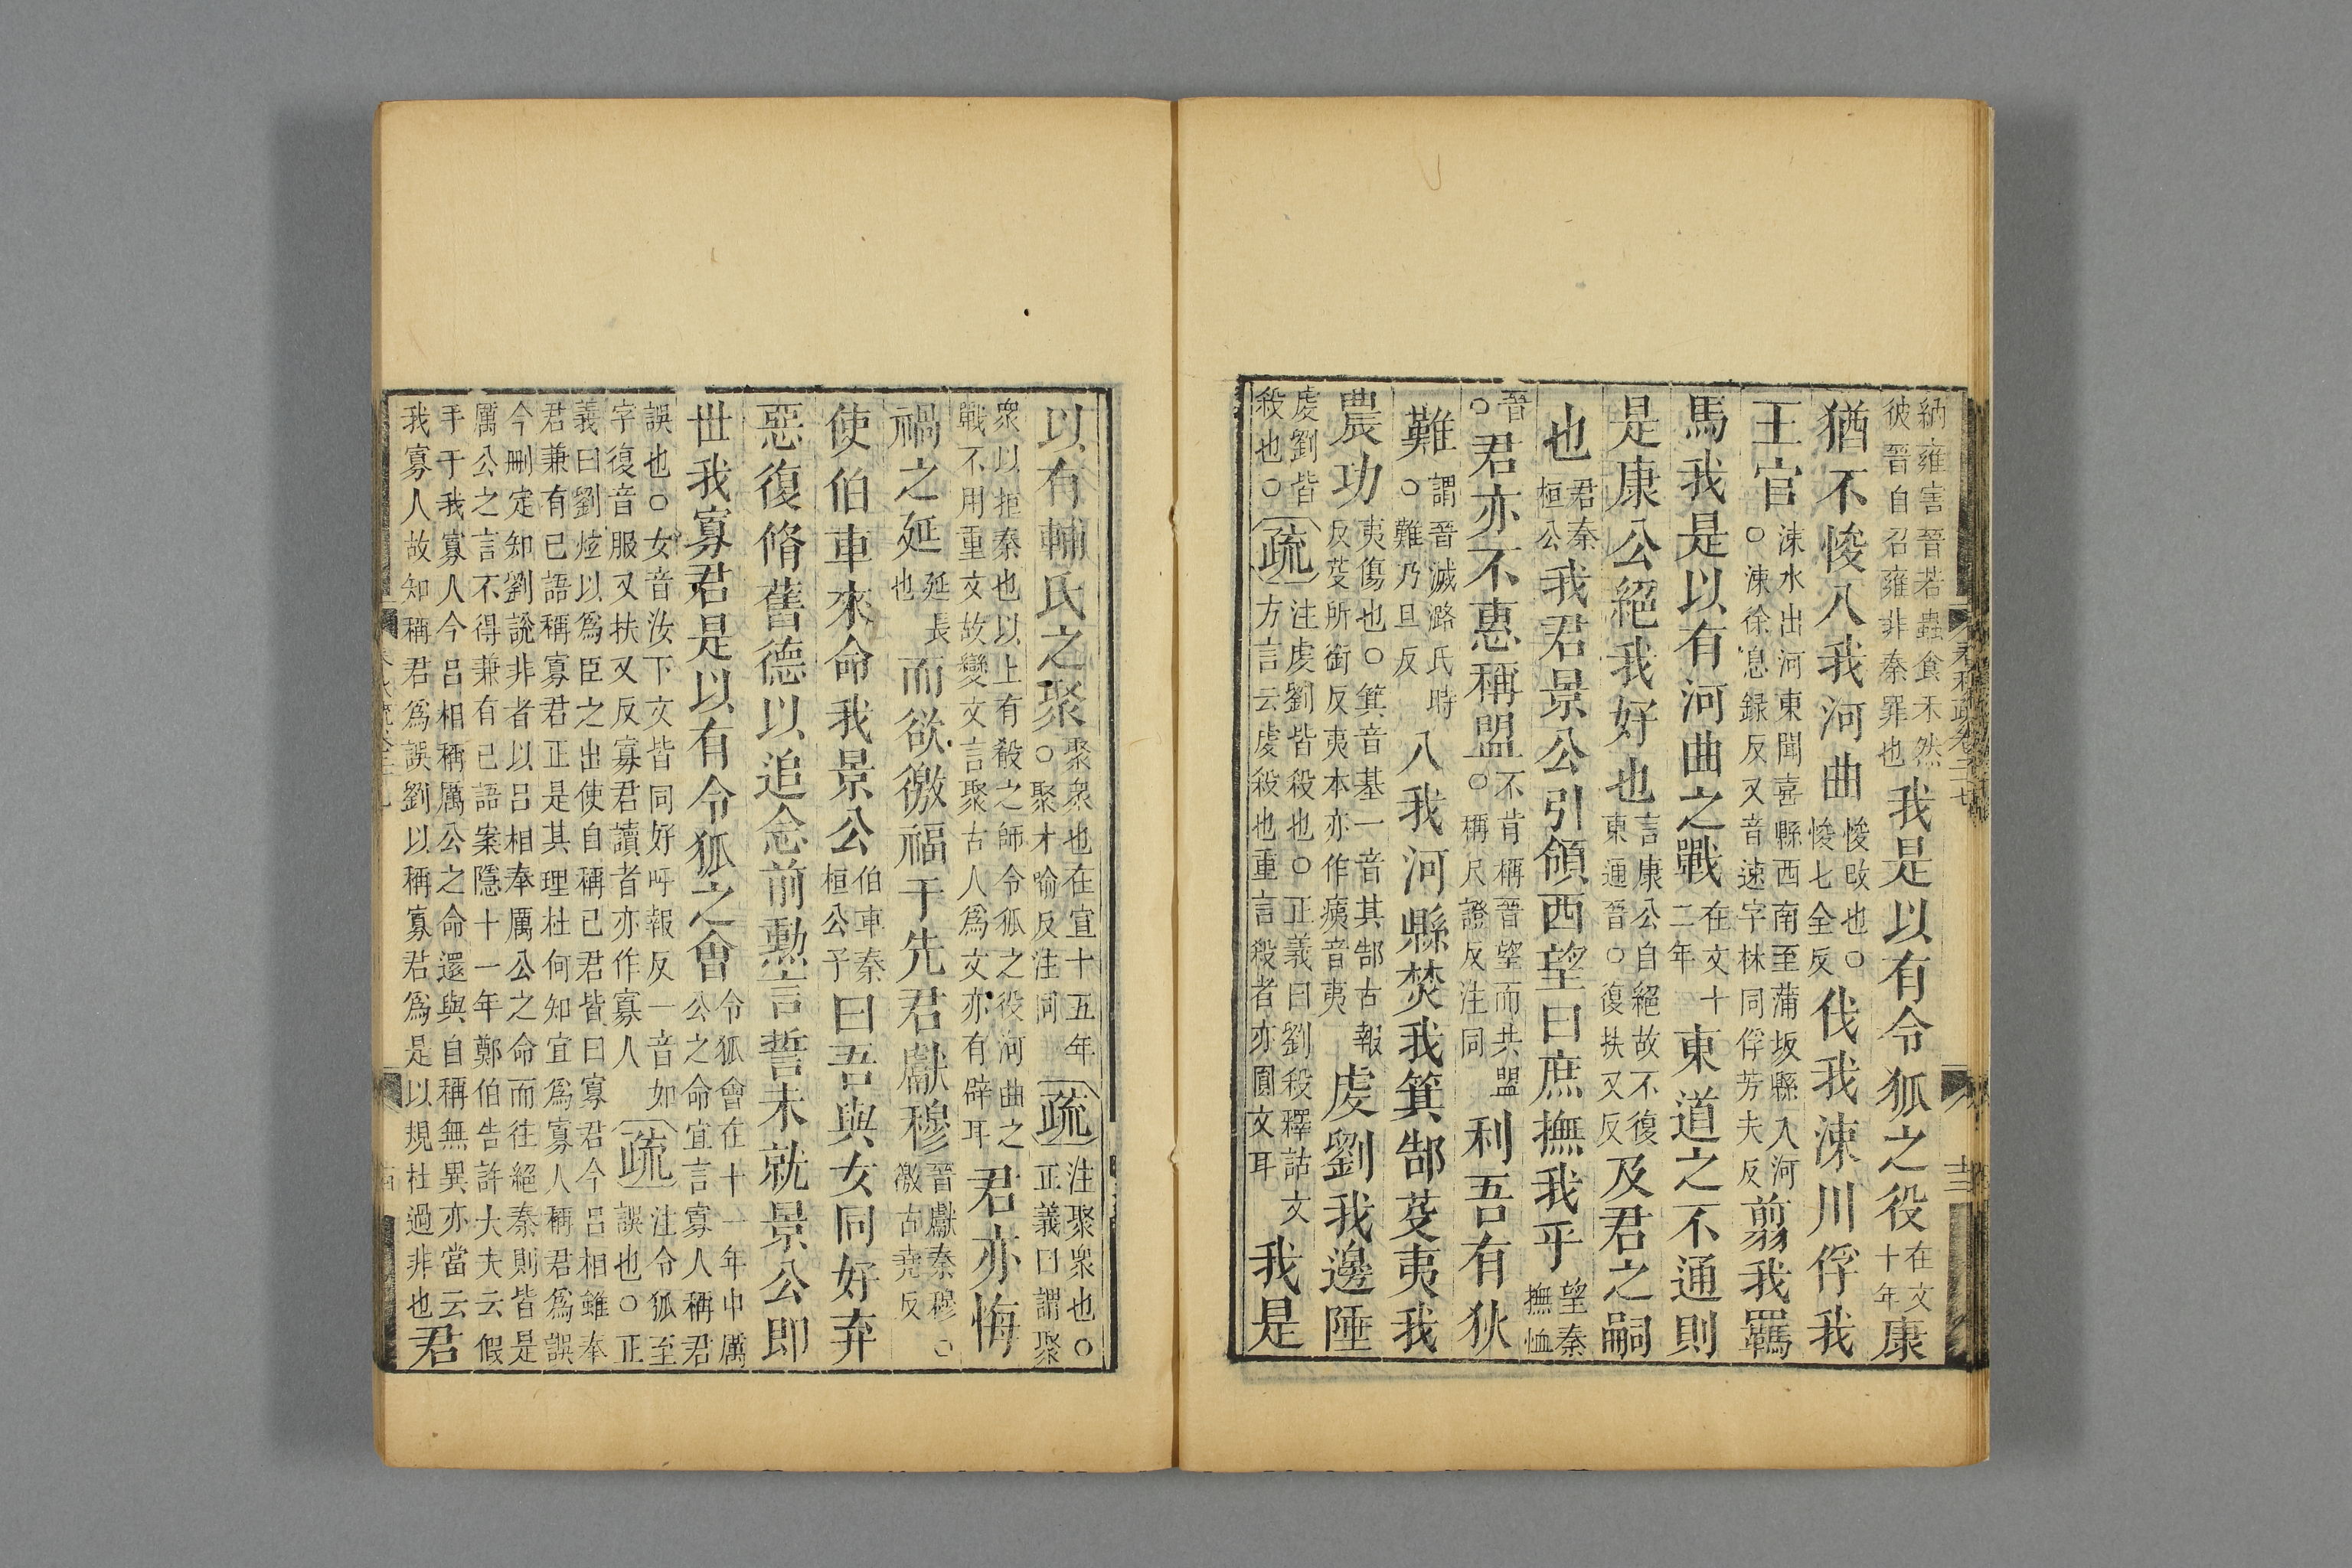 春秋疏卷二十七
十三
納雍害晉若蟲食禾然彼晉自召雍非秦罪也我是以有令狐之役在文十年康
猶不悛入我河曲悛改也○悛七全反伐我涑川俘我
王官涑水出河東聞喜縣西南至蒲坂縣入河○涑徐息録反又音速字林同俘芳夫反翦我羈
馬我是以有河曲之戰在文十二年東道之不通則
是康公絕我好也言康公自絕故不復東通晉○復扶又反及君之嗣
也君秦桓公我君景公引領西望曰庶撫我乎望秦撫恤
晉○君亦不惠稱盟不肯稱晉望而共盟○稱尺證反注同利吾有狄
難謂晉滅潞氏時○難乃旦反入我河縣焚我箕郜芟夷我
農功夷傷也○箕音基一音其郜古報反芟所銜反夷本亦作痍音夷虔劉我邊陲
虔劉皆殺也○疏注虔劉皆殺也○正義曰劉殺釋詁文方言云虔殺也重言殺者亦圓文耳我是
以有輔氏之聚聚衆也在宣十五年○聚才喻反注同疏注聚衆也○正義曰謂聚
衆以拒秦也以上有殽之師令狐之役河曲之戰不用重文故變文言聚古人爲文亦有辟耳君亦悔
禍之延延長也而欲徼福于先君獻穆晉獻秦穆○徼古堯反
使伯車來命我景公伯車秦桓公子曰吾與女同好弃
惡復脩舊德以追念前勳言誓未就景公即
世我寡君是以有令狐之會令狐會在十一年申厲公之命宜言寡人稱君
誤也○女音汝下文皆同好呼報反一音如字復音服又扶又反寡君讀者亦作寡人疏注令狐至誤也○正
義曰劉炫以爲臣之出使自稱已君皆曰寡君今呂相雖奉君兼有已語稱寡君正是其理杜何知宜爲寡人稱君爲誤
今刪定知劉說非者以呂相奉厲公之命而往絕秦則皆是厲公之言不得兼有已語案隱十一年鄭伯告許大夫云假
手于我寡人今呂相稱厲公之命還與自稱無異亦當云我寡人故知稱君爲誤劉以稱寡君爲是以規杜過非也君